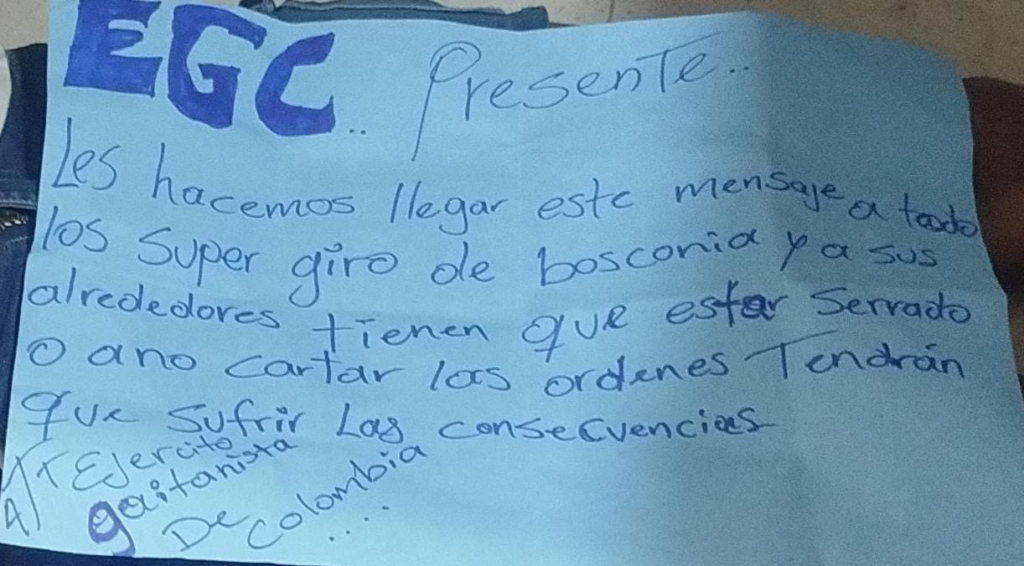 EGC.. Presente..
Les hacemos llegar este mensaje a todo
los Super giro de bosconia y a sus
alrededores tienen que estar Serrado
o ano cartar las ordenes Tendrán
que sufrir Las consecuencias
ATT Ejercito
gaitanista
De colombia
....